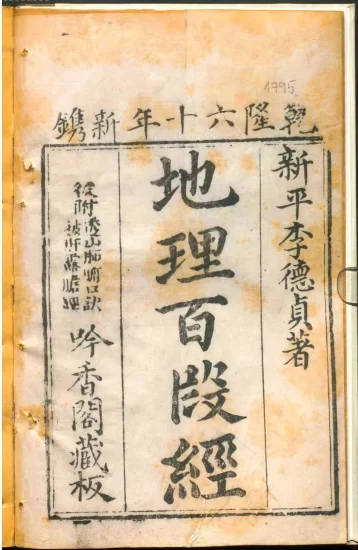 1795
乾隆六十年新鐫
新平李德貞著
地理百段經
後附透山肺腑口訣
吟香閣藏板